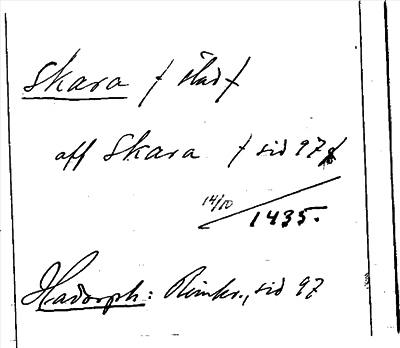 Skara / stad /
aff Skara / sid 97 /
14/10
1435.
Hadorph: Rimkr., sid 97